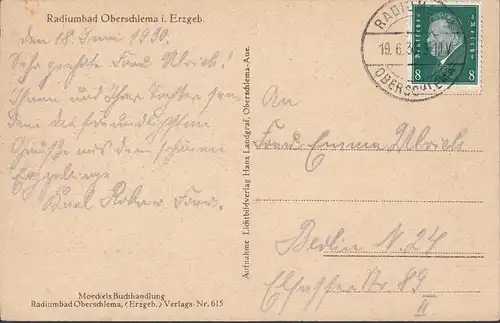 Radiumbad Oberschlema i. Erzgeb.
den 18. Juni 1930.
Sehr geehrte Frau Ulrich!
Ihnen und Ihrer Tochter sen-
den die freundlichsten
Grüße aus dem schönen
Erzgebirge
Karl u. Frau.
Moeckels Buchhandlung
Radiumbad Oberschlema, (Erzgeb.) Verlags-Nr. 615
Aufnahme Lichtbildverlag Hans Landgraf, Oberschlema-Aue.
RADIUM
19.6.3
OBERSCHLEMA
Deutsches Reich
8 8
An
Frau Emma Ulrich
Berlin N. 24
Elsasser Str. 89
II